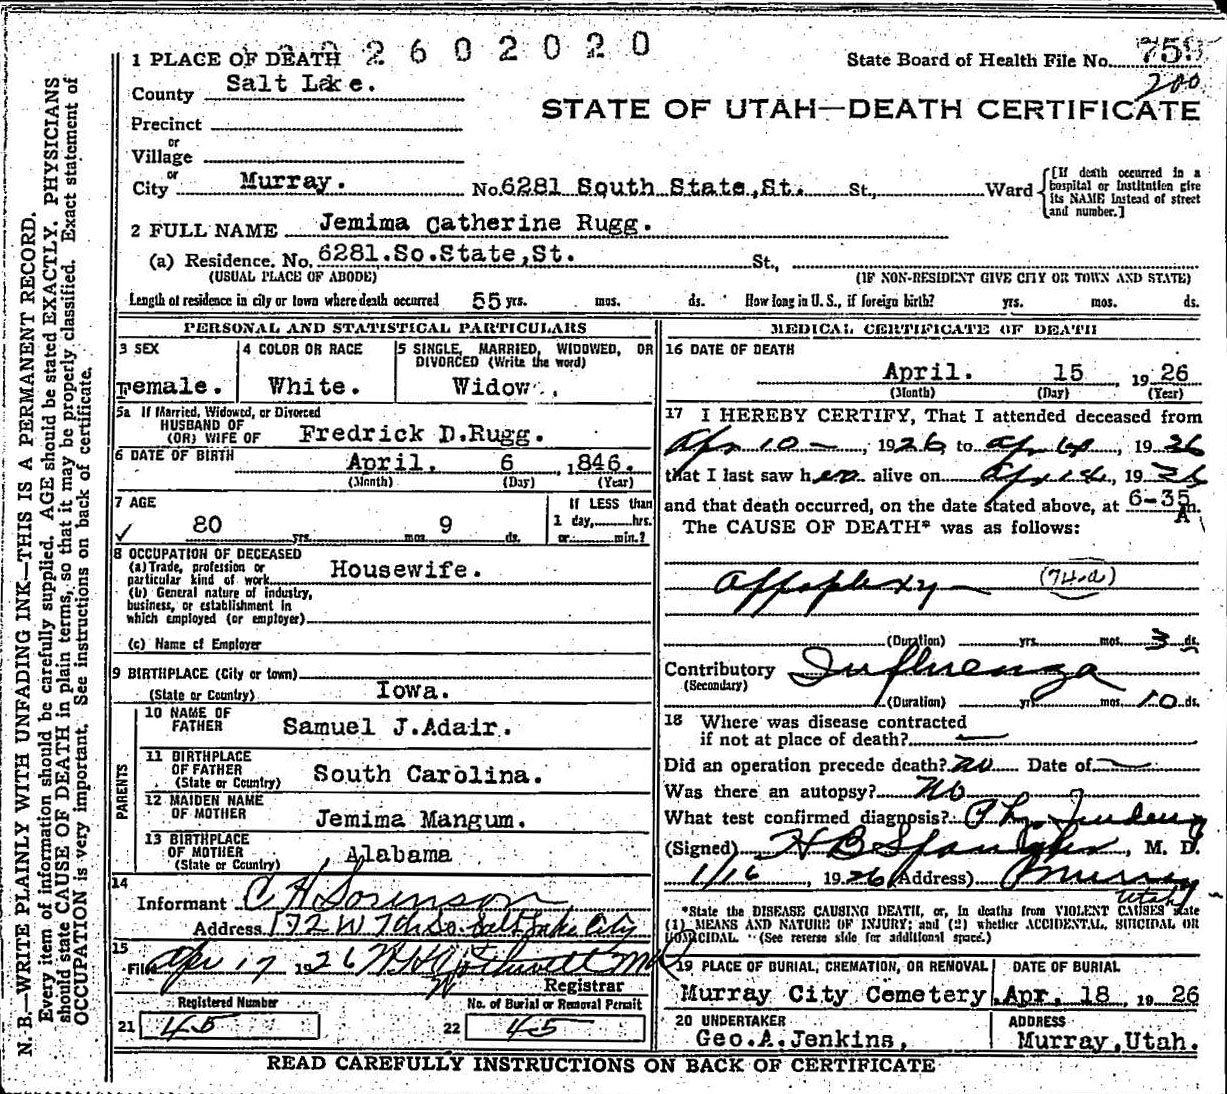 2602020
1 PLACE OF DEATH
State Board of Health File No. 759
200
County Salt Lake.
STATE OF UTAH—DEATH CERTIFICATE
Precinct
or
Village
or
City Murray. No. 6281 South State, St. St., Ward
[If death occurred in a hospital or institution give its NAME instead of street and number.]
2 FULL NAME Jemima Catherine Rugg.
(a) Residence. No. 6281.So.State,St. St.,
(USUAL PLACE OF ABODE) (IF NON-RESIDENT GIVE CITY OR TOWN AND STATE)
Length of residence in city or town where death occurred 55 yrs. mos. ds. How long in U. S., if foreign birth? yrs. mos. ds.
PERSONAL AND STATISTICAL PARTICULARS
3 SEX
Female.
4 COLOR OR RACE
White.
5 SINGLE, MARRIED, WIDOWED, OR
DIVORCED (Write the word)
Widow.
5a If Married, Widowed, or Divorced
HUSBAND OF
(OR) WIFE OF Fredrick D.Rugg.
6 DATE OF BIRTH April. 6 , 1846.
(Month) (Day) (Year)
7 AGE
80 yrs. mos. 9 ds.
If LESS than
1 day, hrs.
or min.?
8 OCCUPATION OF DECEASED
(a) Trade, profession or
particular kind of work Housewife.
(b) General nature of industry,
business, or establishment in
which employed (or employer)
(c) Name of Employer
9 BIRTHPLACE (City or town)
(State or Country) Iowa.
PARENTS
10 NAME OF
FATHER Samuel J.Adair.
11 BIRTHPLACE
OF FATHER
(State or Country) South Carolina.
12 MAIDEN NAME
OF MOTHER Jemima Mangum.
13 BIRTHPLACE
OF MOTHER
(State or Country) Alabama
14
Informant C H Sorenson
Address 172 W 7th So. Salt Lake City
15
Filed Apr 17 1926
Registrar
Registered Number
21 45
No. of Burial or Removal Permit
22 45
MEDICAL CERTIFICATE OF DEATH
16 DATE OF DEATH
April. 15 , 19 26
(Month) (Day) (Year)
17 I HEREBY CERTIFY, That I attended deceased from
Apr 10 — , 1926, to Apr 14 , 19 26
that I last saw her alive on Apr 14 , 19 26
and that death occurred, on the date stated above, at 6-35 A m.
The CAUSE OF DEATH* was as follows:
Appoplexy (74a)
(Duration) yrs. mos. 3 ds.
Contributory Influenza
(Secondary)
(Duration) yrs. mos. 10 ds.
18 Where was disease contracted
if not at place of death?
Did an operation precede death? No Date of
Was there an autopsy? No
What test confirmed diagnosis?
(Signed) H B , M. D.
1/16 , 1926 (Address) Murray
Utah
*State the DISEASE CAUSING DEATH, or, in deaths from VIOLENT CAUSES state
(1) MEANS AND NATURE OF INJURY; and (2) whether ACCIDENTAL, SUICIDAL OR
HOMICIDAL. (See reverse side for additional space.)
19 PLACE OF BURIAL, CREMATION, OR REMOVAL
Murray City Cemetery.
DATE OF BURIAL
Apr. 18 , 19 26
20 UNDERTAKER
Geo.A.Jenkins,
ADDRESS
Murray,Utah.
READ CAREFULLY INSTRUCTIONS ON BACK OF CERTIFICATE
N. B.—WRITE PLAINLY WITH UNFADING INK—THIS IS A PERMANENT RECORD.
Every item of information should be carefully supplied. AGE should be stated EXACTLY. PHYSICIANS
should state CAUSE OF DEATH in plain terms, so that it may be properly classified. Exact statement of
OCCUPATION is very important. See instructions on back of certificate.